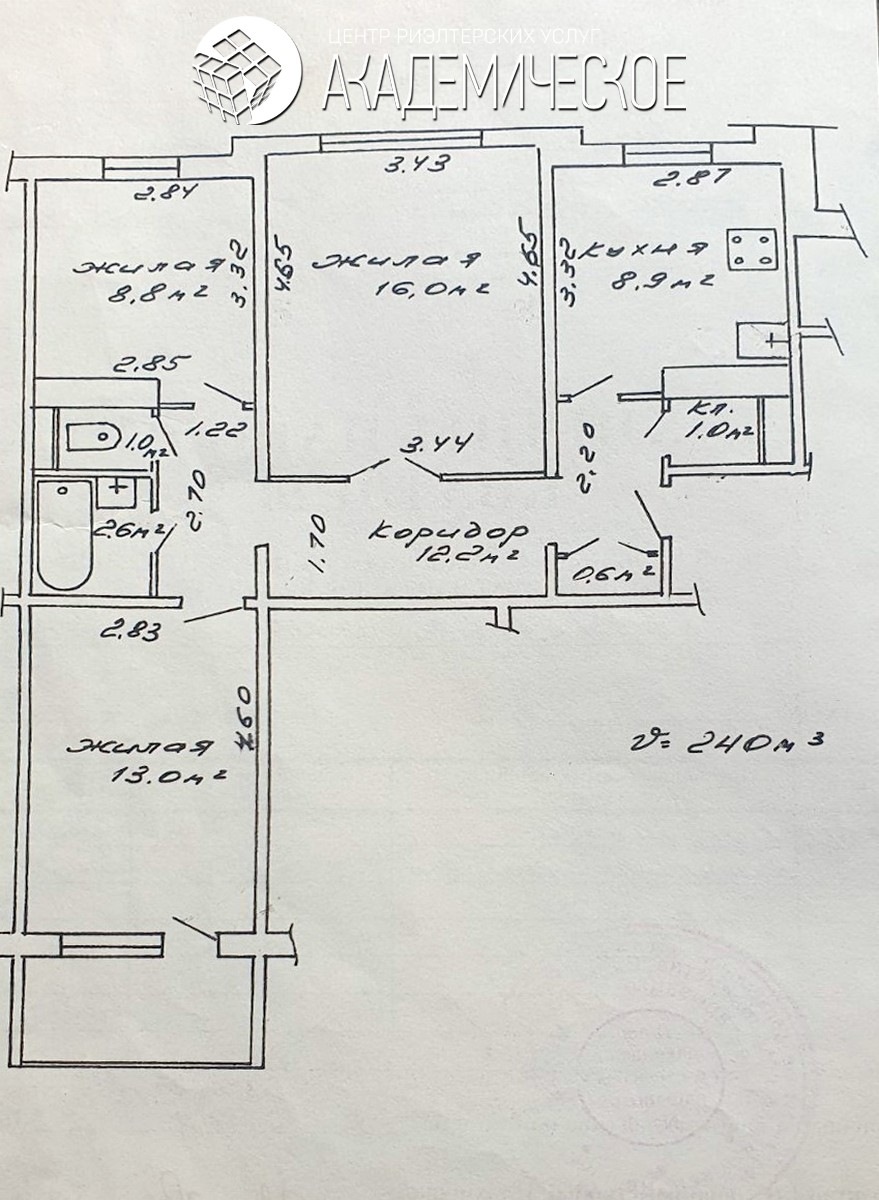 ЦЕНТР РИЭЛТЕРСКИХ УСЛУГ
АКАДЕМИЧЕСКОЕ
2.84
3.43
2.87
жилая
8.8 м²
3.32
4.65
жилая
16,0 м²
4.65
3.32
кухня
8.9 м²
2.85
1.0 м²
1.22
3.44
2.20
кл.
1.0 м²
2.6 м²
2.70
1.70
коридор
12.2 м²
0.6 м²
2.83
жилая
13.0 м²
4.60
V= 240 м³